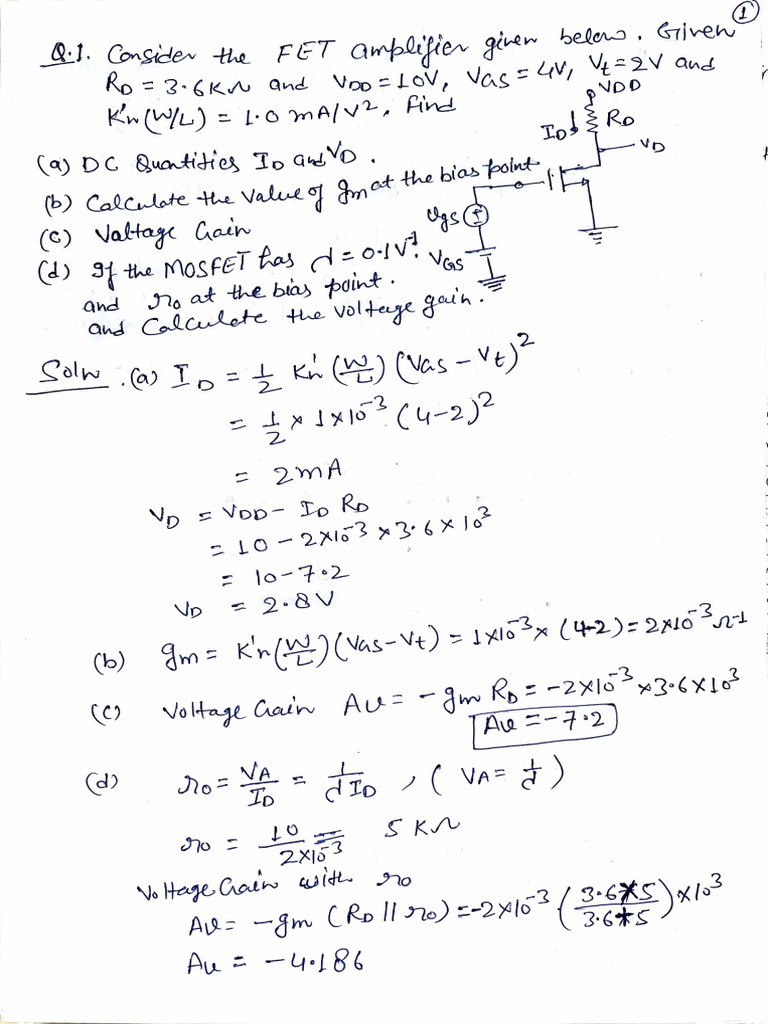 1
Q.1. Consider the FET amplifier given below. Given
RD = 3.6KΩ and VDD = 10V, VGS = 4V, Vt = 2V and
K'n(W/L) = 1.0 mA/V². Find
VDD
ID
RD
VD
(a) DC Quantities ID and VD.
(b) Calculate the value of gm at the bias point
(c) Voltage Gain
vgs
VGS
(d) If the MOSFET has λ = 0.1V⁻¹.
and ro at the bias point.
and Calculate the voltage gain.
Soln. (a) ID = 1/2 K'n (W/L) (VGS - Vt)²
= 1/2 × 1×10⁻³ (4-2)²
= 2mA
VD = VDD - ID RD
= 10 - 2×10⁻³ × 3.6 × 10³
= 10-7.2
VD = 2.8V
(b) gm = K'n(W/L)(VGS-Vt) = 1×10⁻³ × (4-2) = 2×10⁻³ Ω-1
(c) Voltage Gain Av = -gm RD = -2×10⁻³ × 3.6×10³
Av = -7.2
(d) ro = VA/ID = 1/λID , ( VA = 1/λ )
ro = 10/2×10⁻³ = 5 KΩ
Voltage Gain with ro
Av = -gm (RD || ro) = -2×10⁻³ (3.6×5/3.6+5) ×10³
Av = -4.186